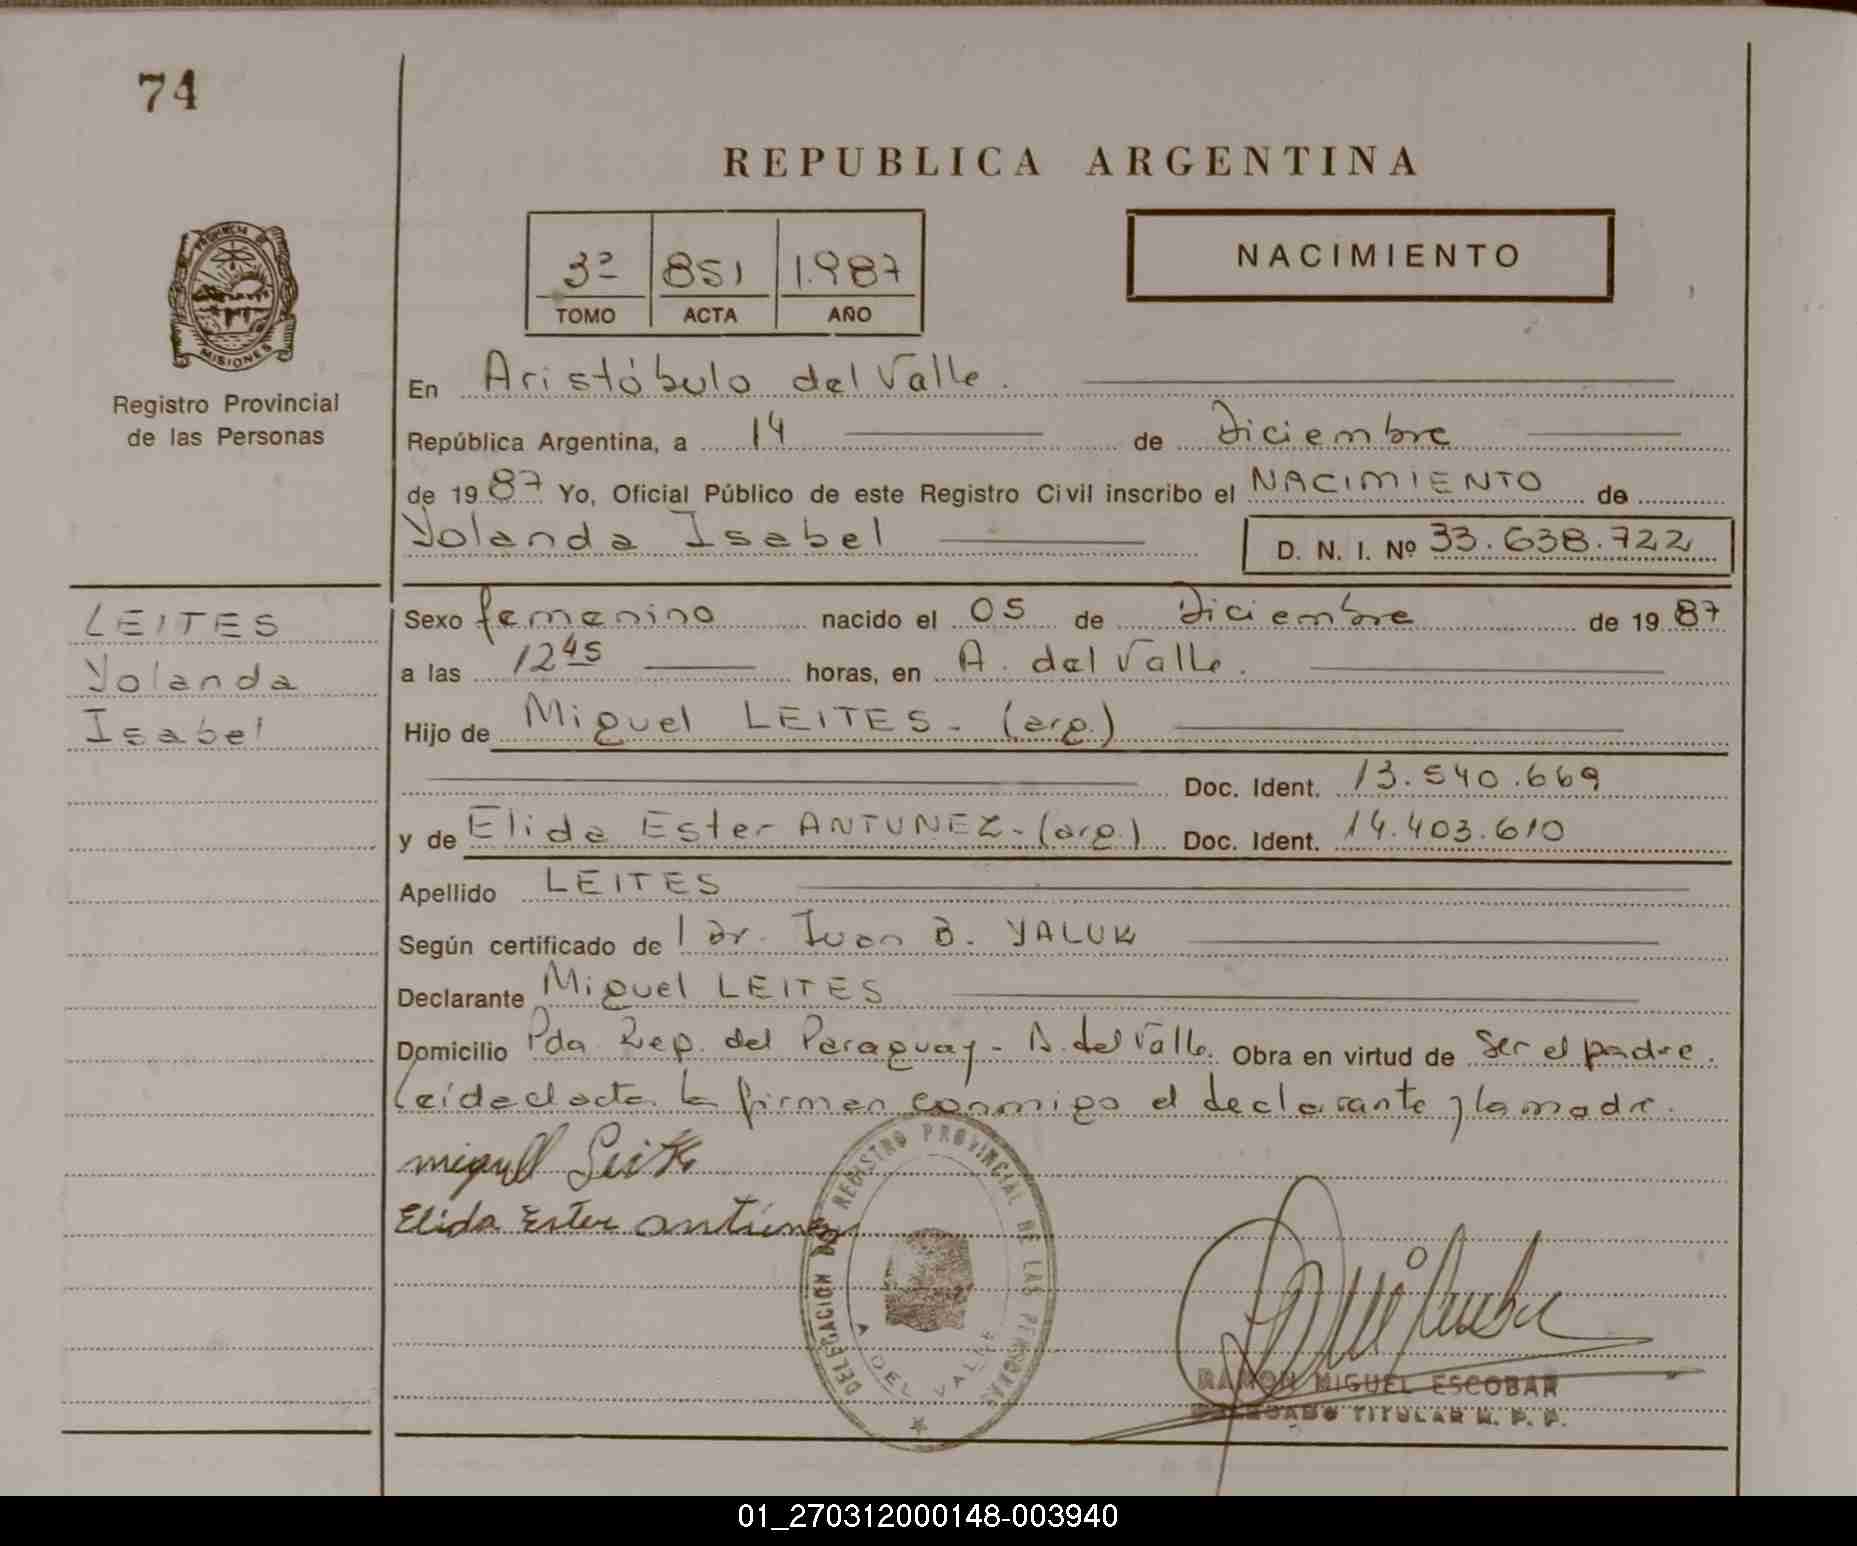 74
REPUBLICA ARGENTINA
PROVINCIA DE
MISIONES
Registro Provincial
de las Personas
3º 851 1.987
TOMO ACTA AÑO
NACIMIENTO
En Aristóbulo del Valle.
República Argentina, a 14 de Diciembre
de 1987 Yo, Oficial Público de este Registro Civil inscribo el NACIMIENTO de
Yolanda Isabel D. N. I. Nº 33.638.722
LEITES
Yolanda
Isabel
Sexo femenino nacido el 05 de Diciembre de 1987
a las 12 45 horas, en A. del Valle.
Hijo de Miguel LEITES - (arg.)
Doc. Ident. 13.540.669
y de Elida Ester ANTUNEZ - (arg.) Doc. Ident. 14.403.610
Apellido LEITES
Según certificado de l dr. Juan B. YALUK
Declarante Miguel LEITES
Domicilio Pda Rep. del Paraguay - A. del Valle. Obra en virtud de Ser el padre.
Leída el acta la firman conmigo el declarante y la madre.
miguel Leites
Elida Ester antunez
DELEGACION DEL REGISTRO PROVINCIAL DE LAS PERSONAS
A DEL VALLE
RAMON MIGUEL ESCOBAR
DELEGADO TITULAR R. P. P.
01_270312000148-003940